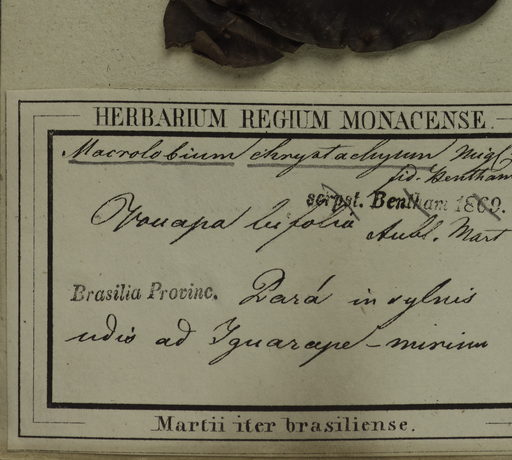 HERBARIUM REGIUM MONACENSE.
Macrolobium chrystachyum Miq
fid. Bentham
scrpst. Bentham 1869.
Vouapa bifolia
Aubl. Mart
Brasilia Provinc. Pará in sylvis
udis ad Iguarape-mirim
Martii iter brasiliense.